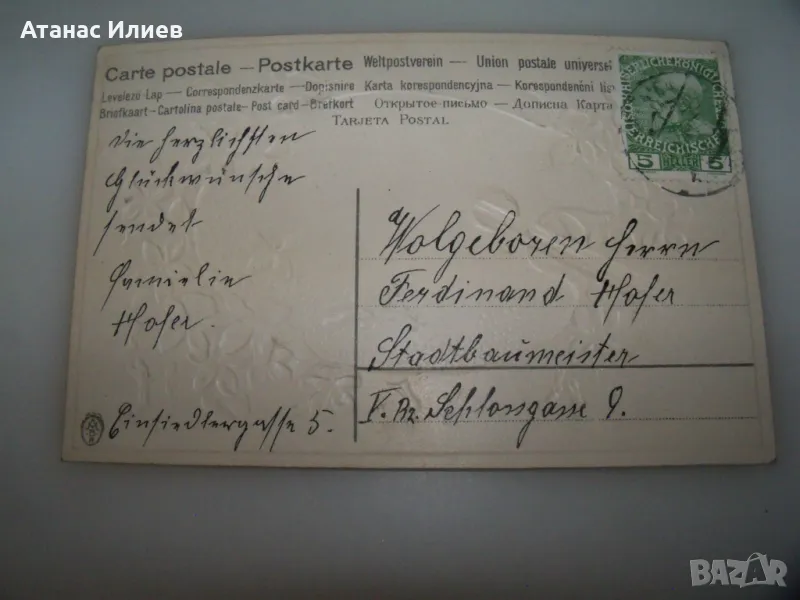 Атанас Илиев
Carte postale — Postkarte Weltpostverein — Union postale universel
Levelező Lap — Correspondenzkarte — Dopisnice Karta korespondencyjna — Korespondenční lis
Briefkaart - Cartolina postale - Post card - Brefkort Открытое письмо — Дописна Карта
TARJETA POSTAL
KAISERLICHE KÖNIGLICHE
ÖSTERREICHISCHE
5 HELLER 5
Die herzlichsten
Glückwünsche
sendet
Familie
Hofer.
Einsiedlergasse 5.
Wolgeboren Herrn
Ferdinand Hofer
Stadtbaumeister
V. Bz. Schlossgasse 9.
BAZAR